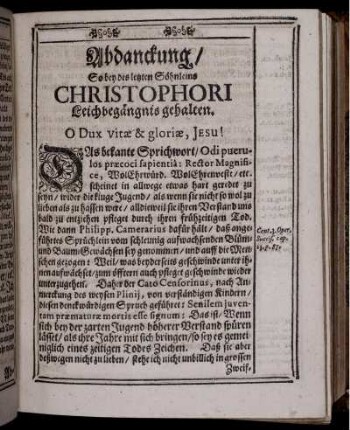 Abdanckung/
So bey des letzten Söhnleins
CHRISTOPHORI
Leichbegängnis gehalten.
O Dux vitæ & gloriæ, JESU!
DAs bekante Sprichwort/ Odi pueru-
los præcoci sapientiâ: Rector Magnifi-
ce, WolEhrwürd. WolEhrenveste/ etc.
scheinet in allwege etwas hart geredet zu
seyn/ wider die kluge Jugend/ als wenn sie nicht so wol zu
lieben als zu hassen wäre/ alldieweil sie ihren Verstand uns
bald zu entziehen pfleget durch ihren frühzeitigen Tod.
Wie dann Philipp. Camerarius dafür hält/ daß ange-
führtes Sprüchlein vom schleunig aufwachsenden Blüm-
und Baum-Gewächsen sey genommen/ und auff die Men-
schen gezogen: Weil/ was beyderseits geschwinde unter ih-
nen aufwächset/ zum öfftern auch pfleget geschwinde wieder
unterzugehen. Daher der Cato Censorinus, nach An-
merckung des weysen Plinij, von verständigen Kindern/
diesen denckwürdigen Spruch geführet: Senilem juven-
tam præmaturæ mortis esse signum: Das ist/ Wenn
sich bey der zarten Jugend höherer Verstand spüren
lässet/ als ihre Jahre mit sich bringen/ so sey es gemei-
niglich eines zeitigen Todes Zeichen. Daß sie aber
deßwegen nicht zu lieben/ stehe ich nicht unbillich in grossen
Zweif-
Cent. 3. Oper.